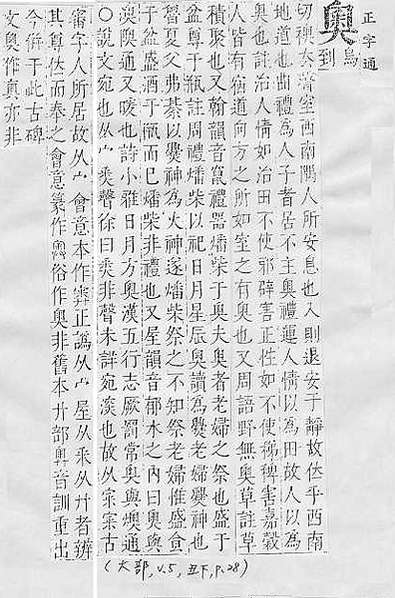 正字通
奧
烏到
切襖去聲室西南隅人所安息也入則退安于靜故位乎西南
地道也曲禮為人子者居不主奧禮運人情以為田故人以為
奧也註治人情如治田不使邪辟害正性如不使稊稗害嘉穀
人皆有宿道向方之所如室之有奧也又周語野無奧草註草
積聚也又翰韻音爨禮器燔柴于奧夫奧者老婦之祭也盛于
盆尊于瓶註周禮燔柴以祀日月星辰奧讀為爨老婦爨神也
夏父弗綦以爨神為火神遂燔柴祭之不知祭老婦惟盛食
于盆盛酒于瓶而已燔柴非禮也又屋韻音郁水之內曰奧與
澳隩通又煖也詩小雅日月方奧漢五行志厥罰常奧與燠通
○說文宛也从宀𢍏聲徐曰𢍏非聲未詳宛深也故从宀宷古
審字人所居故从宀會意本作正譌从宀屋从釆从廾者辨
其尊位而奉之會意篆作俗作奧非舊本廾部音訓重出
今併于此古碑
文奧作亦非
(大部, v.5, 丑下, p.28)